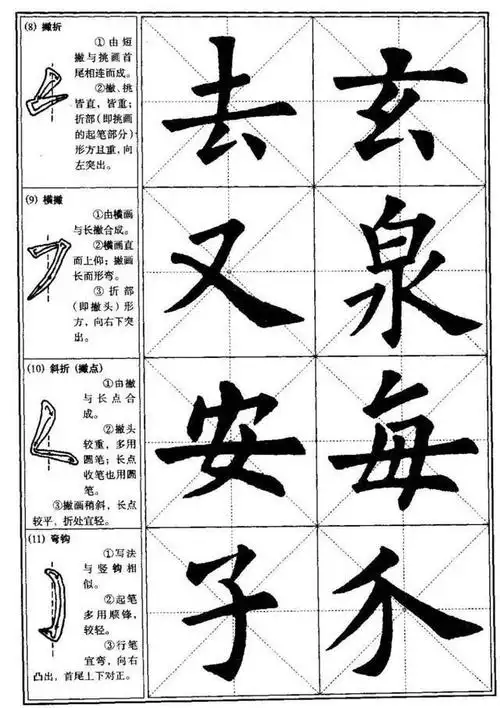 (8) 撇折
①由短
撇与挑画首
尾相连而成。
②撇、挑
皆直，皆重；
折部（即挑画
的起笔部分）
形方且重，向
左突出。
去 玄
(9) 横撇
①由横画
与长撇合成。
②横画直
而上仰；撇画
长而形弯。
③ 折部
（即撇头）形
方，向右下突
出。
又 泉
(10) 斜折 (撇点)
①由撇
与长点合
成。
②撇头
较重，多用
圆笔；长点
收笔也用圆
笔。
③撇画稍斜，长点
较平，折处宜轻。
安 每
(11) 弯钩
①写法
与竖钩相
似。
②起笔
多用顺锋，
较轻。
③行笔
宜弯，向右
凸出，首尾上下对正。
子